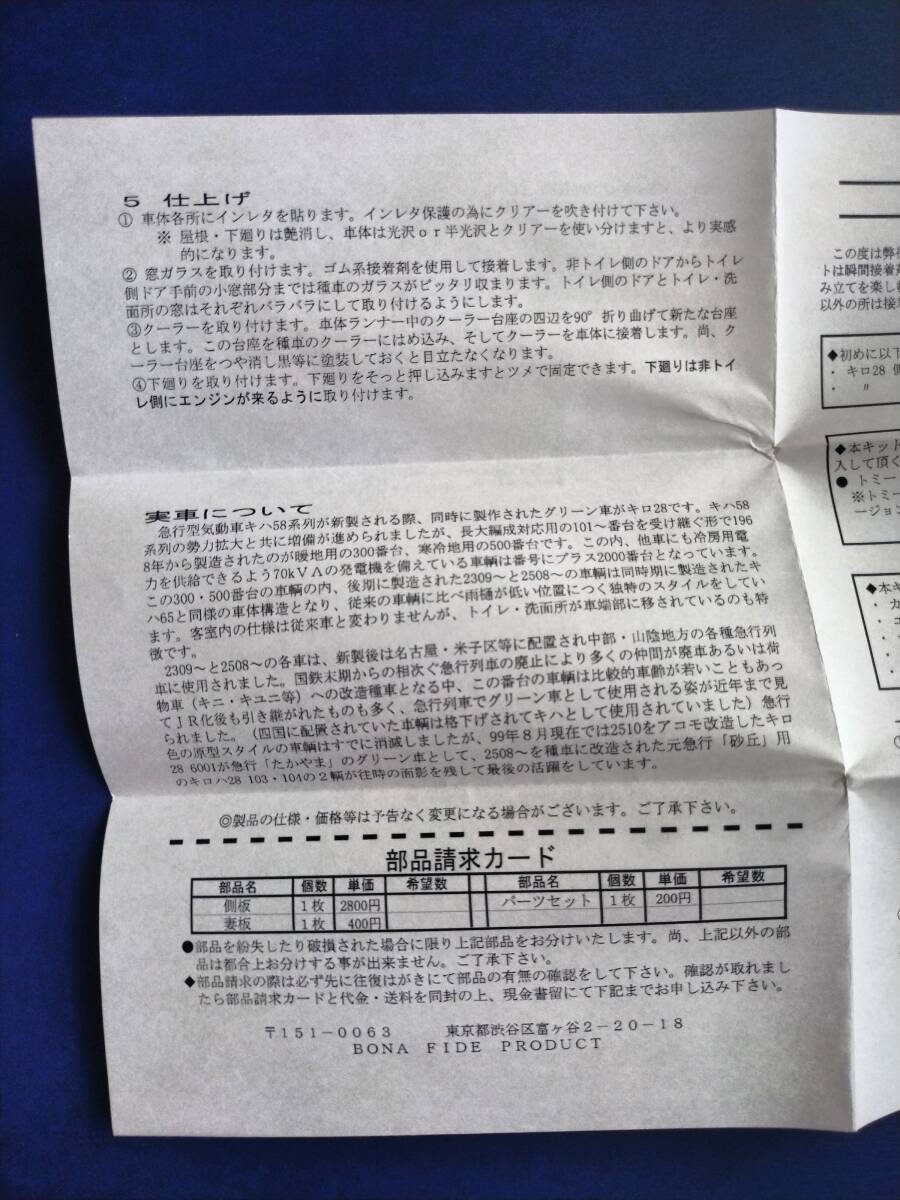 5 仕上げ
① 車体各所にインレタを貼ります。インレタ保護の為にクリアーを吹き付けて下さい。
※ 屋根・下廻りは艶消し、車体は光沢or半光沢とクリアーを使い分けますと、より実感
的になります。
② 窓ガラスを取り付けます。ゴム系接着剤を使用して接着します。非トイレ側のドアからトイレ
側ドア手前の小窓部分までは種車のガラスがピッタリ収まります。トイレ側のドアとトイレ・洗
面所の窓はそれぞれバラバラにして取り付けるようにします。
③クーラーを取り付けます。車体ランナー中のクーラー台座の四辺を90°折り曲げて新たな台座
とします。この台座を種車のクーラーにはめ込み、そしてクーラーを車体に接着します。尚、ク
ーラー台座をつや消し黒等に塗装しておくと目立たなくなります。
④下廻りを取り付けます。下廻りをそっと押し込みますとツメで固定できます。下廻りは非トイ
レ側にエンジンが来るように取り付けます。
実車について
急行型気動車キハ58系列が新製される際、同時に製作されたグリーン車がキロ28です。キハ58
系列の勢力拡大と共に増備が進められましたが、長大編成対応用の101～番台を受け継ぐ形で196
8年から製造されたのが暖地用の300番台、寒冷地用の500番台です。この内、他車にも冷房用電
力を供給できるよう70kVAの発電機を備えている車輌は番号にプラス2000番台となっています。
この300・500番台の車輌の内、後期に製造された2309～と2508～の車輌は同時期に製造されたキ
ハ65と同様の車体構造となり、従来の車輌に比べ雨樋が低い位置につく独特のスタイルをしてい
ます。客室内の仕様は従来車と変わりませんが、トイレ・洗面所が車端部に移されているのも特
徴です。
2309～と2508～の各車は、新製後は名古屋・米子区等に配置され中部・山陰地方の各種急行列
車に使用されました。国鉄末期からの相次ぐ急行列車の廃止により多くの仲間が廃車あるいは荷
物車（キニ・キユニ等）への改造種車となる中、この番台の車輌は比較的車齢が若いこともあっ
てJR化後も引き継がれたものも多く、急行列車でグリーン車として使用される姿が近年まで見
られました。（四国に配置されていた車輌は格下げされてキハとして使用されていました）急行
色の原型スタイルの車輌はすでに消滅しましたが、99年8月現在では2510をアコモ改造したキロ
28 6001が急行「たかやま」のグリーン車として、2508～を種車に改造された元急行「砂丘」用
のキロハ28 103・104の2輌が往時の面影を残して最後の活躍をしています。
◎製品の仕様・価格等は予告なく変更になる場合がございます。ご了承下さい。
部品請求カード
部品名 個数 単価 希望数 部品名 個数 単価 希望数
側板 1枚 2800円 パーツセット 1枚 200円
妻板 1枚 400円
●部品を紛失したり破損された場合に限り上記部品をお分けいたします。尚、上記以外の部
品は都合上お分けする事が出来ません。ご了承下さい。
◆部品請求の際は必ず先に往復はがきにて部品の有無の確認をして下さい。確認が取れまし
たら部品請求カードと代金・送料を同封の上、現金書留にて下記までお申し込み下さい。
〒151-0063 東京都渋谷区富ヶ谷2-20-18
BONA FIDE PRODUCT
この度は弊
トは瞬間接着
み立てを楽し
以外の所は接
◆初めに以下
・ キロ28 側
・ 〃
◆本キット
入して頂く
● トミー
※トミー
ージョン
◆本キ